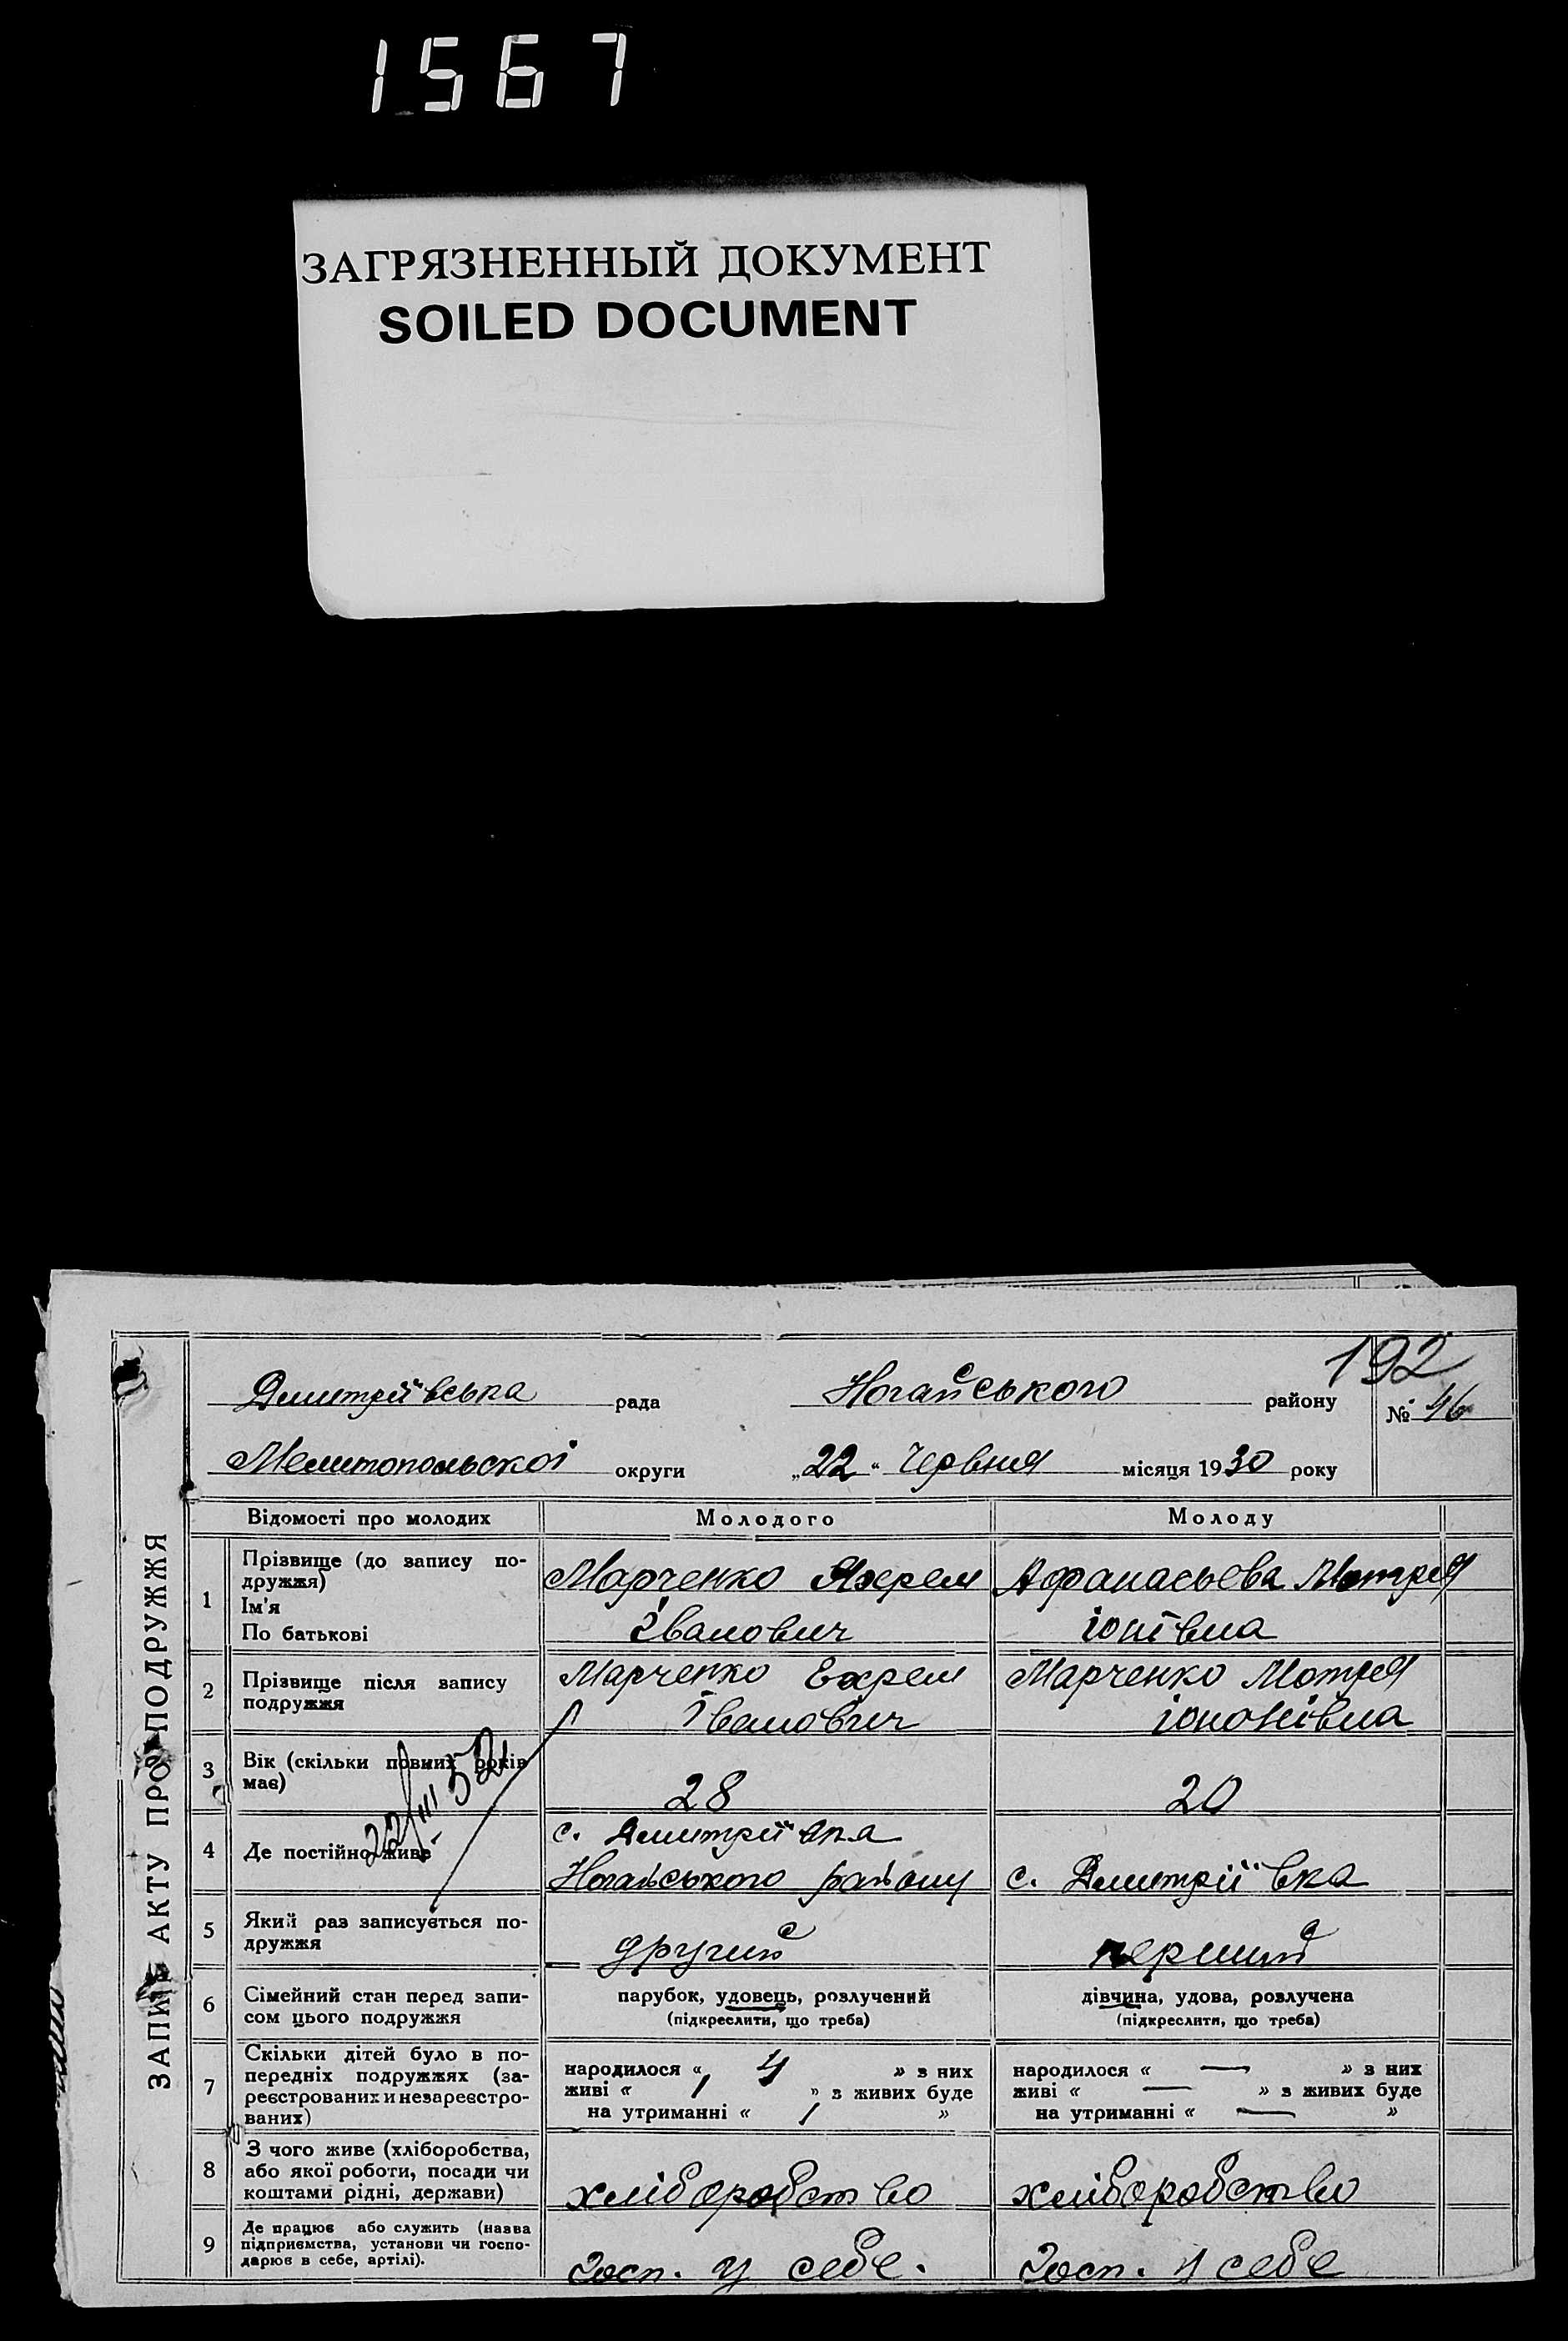 1567
ЗАГРЯЗНЕННЫЙ ДОКУМЕНТ
SOILED DOCUMENT
192
Дмитріївська рада Ногайського району № 46
Мелитопольскої округи „22“ Червня місяця 1930 року
ЗАПИС АКТУ ПРО ПОДРУЖЖЯ
Відомості про молодих Молодого Молоду
1 Прізвище (до запису по-
дружжя)
Ім'я
По батькові
Марченко Яхрем
Іванович
Афанасьева Мотрея
іонівна
2 Прізвище після запису
подружжя
Марченко Ехрем
Іванович
Марченко Мотрея
іононівна
3 Вік (скільки повних років
має)
28 20
22/III 52
4 Де постійно живе
с. Дмитріївка
Ногайського району
с. Дмитріївка
5 Який раз записується по-
дружжя
другий перший
6 Сімейний стан перед запи-
сом цього подружжя
парубок, удовець, розлучений
(підкреслити, що треба)
дівчина, удова, розлучена
(підкреслити, що треба)
7 Скільки дітей було в по-
передніх подружжях (за-
реєстрованих и незареєстро-
ваних)
народилося « 4 » з них
живі « 1 » з живих буде
на утриманні « 1 »
народилося « — » з них
живі « — » з живих буде
на утриманні « — »
8 З чого живе (хліборобства,
або якої роботи, посади чи
коштами рідні, держави)
хліборобство хліборобство
9 Де працює або служить (назва
підприємства, установи чи госпо-
дарює в себе, артілі).
госп. у себе. госп. у себе